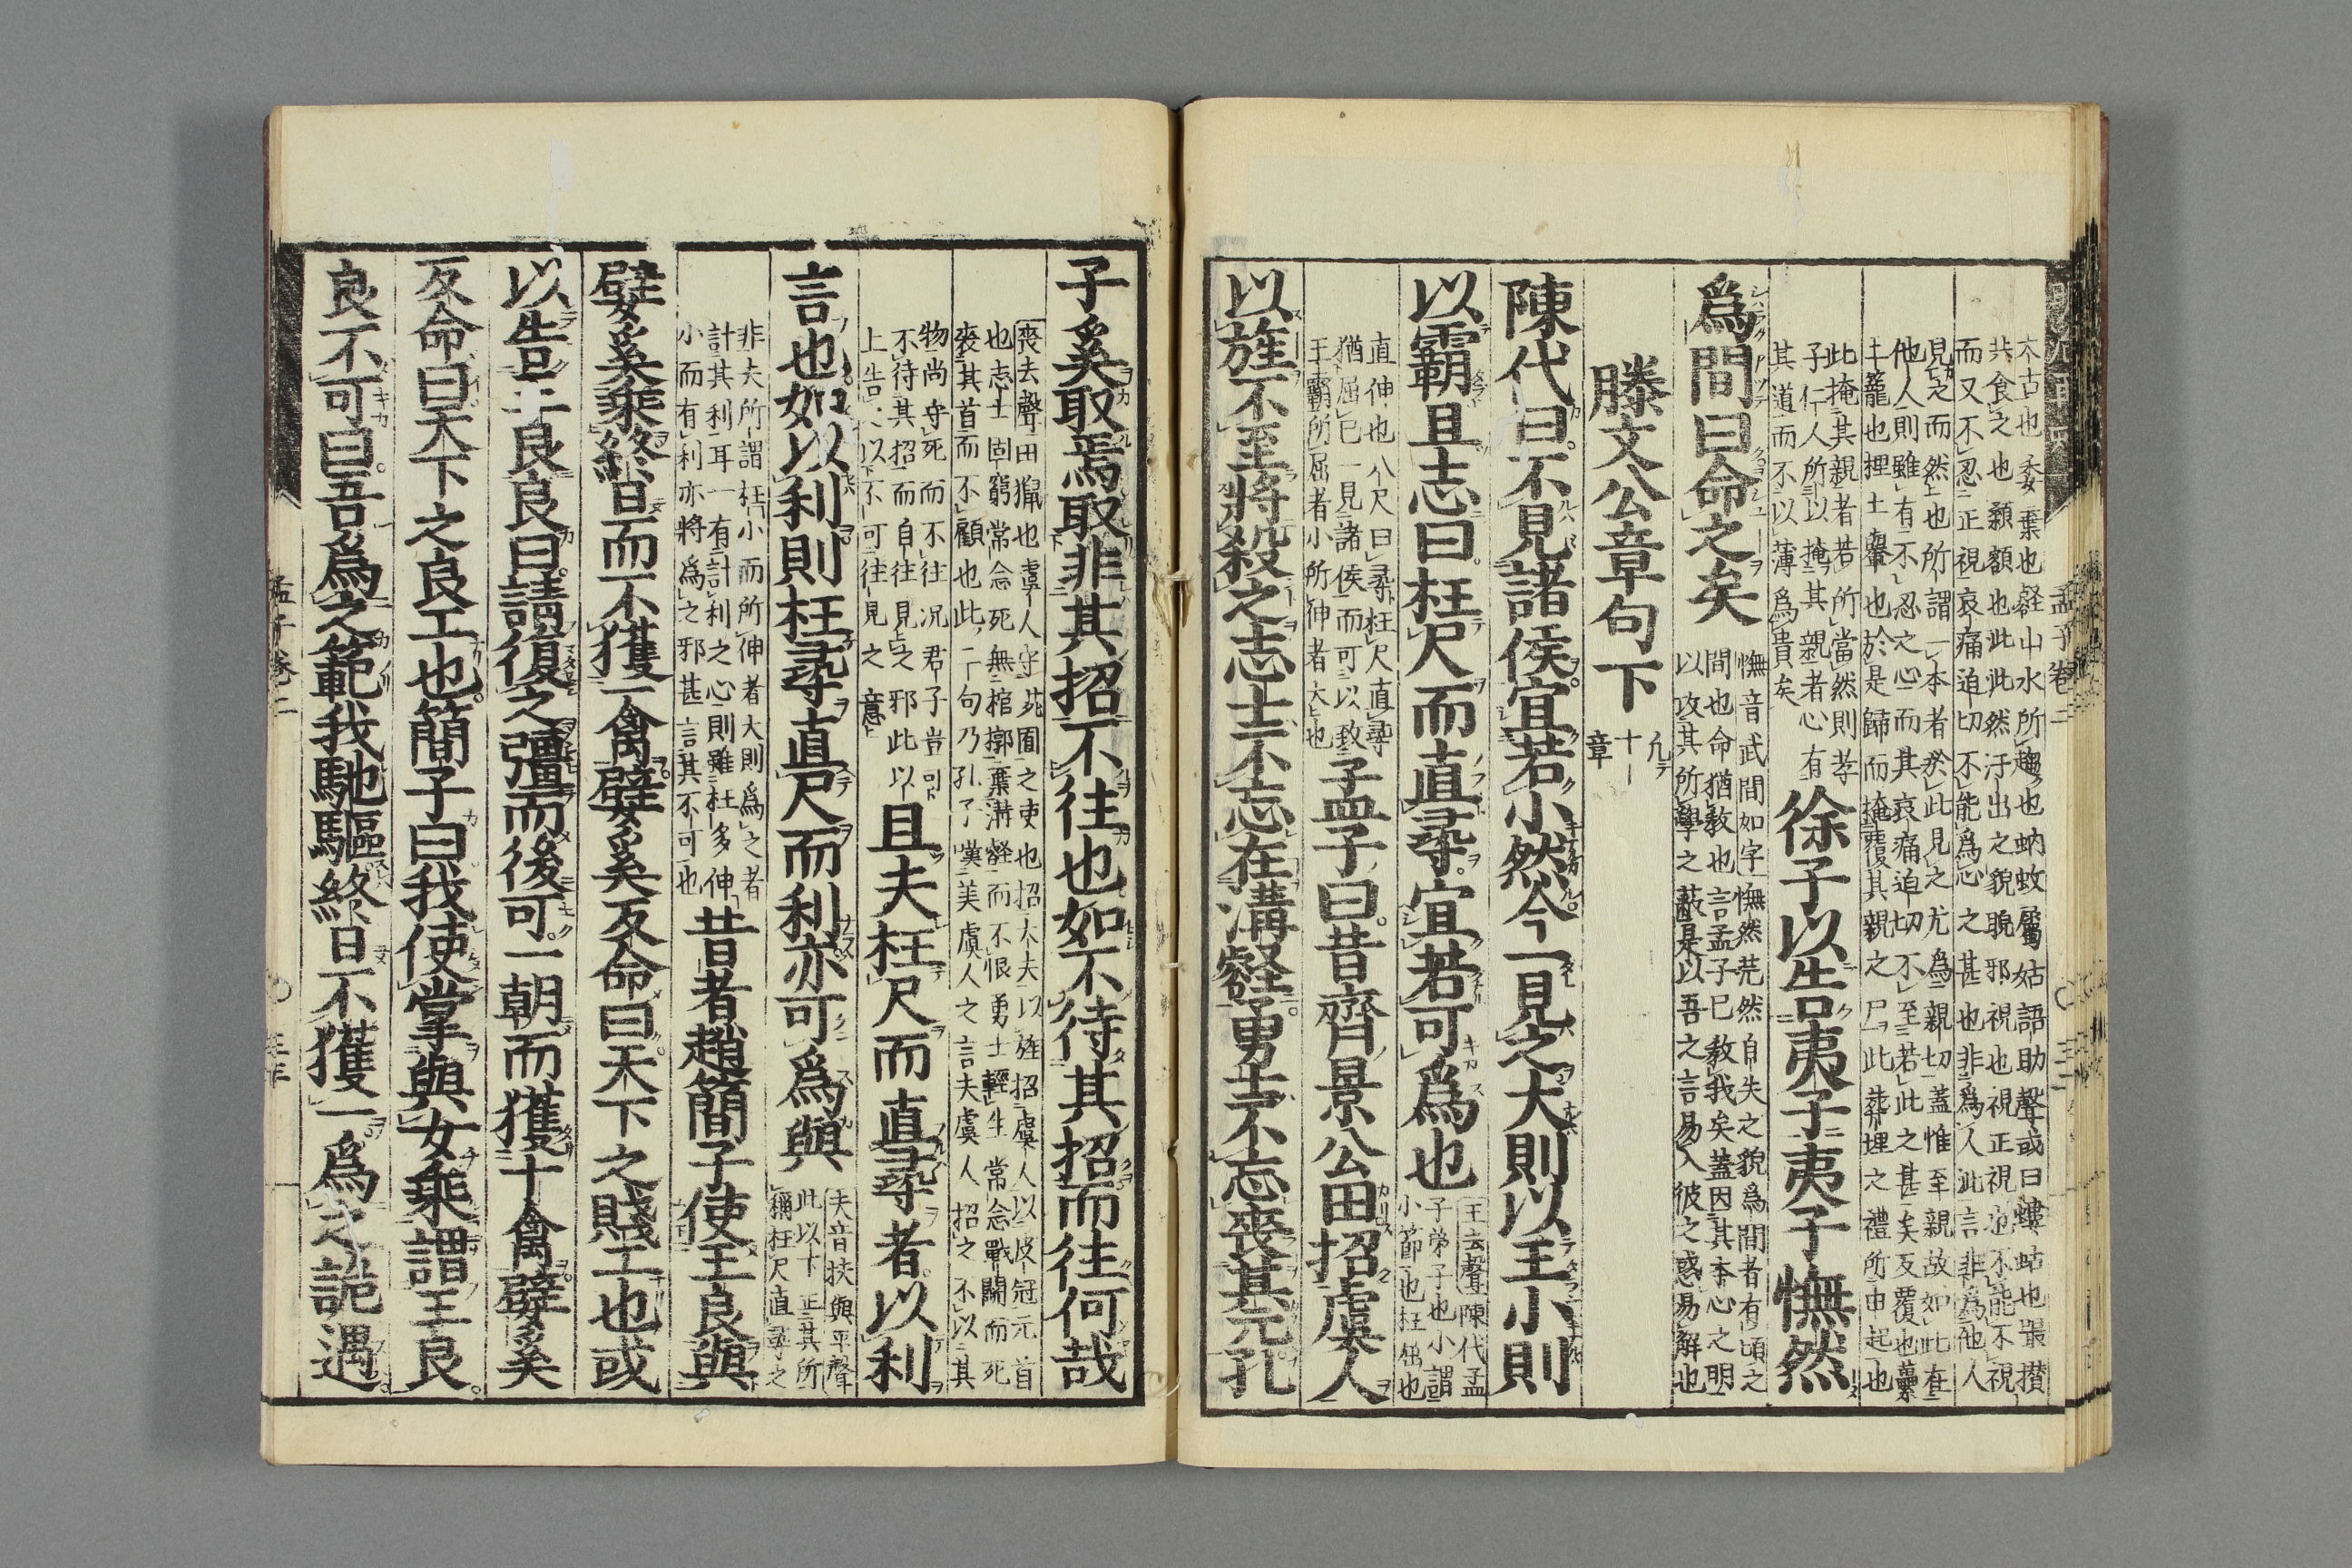 太古也委棄也壑山水所趨也蚋蚊屬姑語助聲或曰螻蛄也嘬攅
共食之也顙額也泚泚然汗出之貌睨邪視也視正視也不能不視
而又不忍正視哀痛迫切不能爲心之甚也非爲人泚言非爲他人
見之而然也所謂一本者於此見之尤爲親切蓋惟至親故如此在
他人則雖有不忍之心而其哀痛迫切不至若此之甚矣反覆也虆
土籠也梩土轝也於是歸而掩覆其親之尸此葬埋之禮所由起也
此掩其親者若所當然則孝
子仁人所以掩其親者心有
其道而不以薄爲貴矣
徐子以告夷子夷子憮然
爲間曰命之矣
憮音武間如字憮然茫然自失之貌爲間者有頃之
間也命猶教也言孟子已教我矣蓋因其本心之明
以攻其所學之蔽是以吾之言易入彼之惑易解也
滕文公章句下
凡十章
陳代曰不見諸侯宜若小然今一見之大則以王小則
以霸且志曰枉尺而直尋宜若可爲也
王去聲陳代孟
子弟子也小謂
小節也枉屈也
直伸也八尺曰尋枉尺直尋
猶屈己一見諸侯而可以致
王霸所屈者小所伸者大也
孟子曰昔齊景公田招虞人
以旌不至將殺之志士不忘在溝壑勇士不忘喪其元孔
子奚取焉取非其招不往也如不待其招而往何哉
喪去聲田獵也虞人守苑囿之吏也招大夫以旌招虞人以皮冠元首
也志士固窮常念死無棺槨棄溝壑而不恨勇士輕生常念戰鬪而死
喪其首而不顧也此二句乃孔子嘆美虞人之言夫虞人招之不以其
物尚守死而不往況君子豈可
不待其招而自往見之邪此以
上告之以不可往見之意
且夫枉尺而直尋者以利
言也如以利則枉尋直尺而利亦可爲與
夫音扶與平聲
此以下正其所
稱枉尺直尋之
非夫所謂枉小而所伸者大則爲之者
計其利耳一有計利之心則雖枉多伸
小而有利亦將爲之邪甚言其不可也
昔者趙簡子使王良與
嬖奚乘終日而不獲一禽嬖奚反命曰天下之賤工也或
以告王良良曰請復之彊而後可一朝而獲十禽嬖奚
反命曰天下之良工也簡子曰我使掌與女乘謂王良
良不可曰吾爲之範我馳驅終日不獲一爲之詭遇
孟子卷二